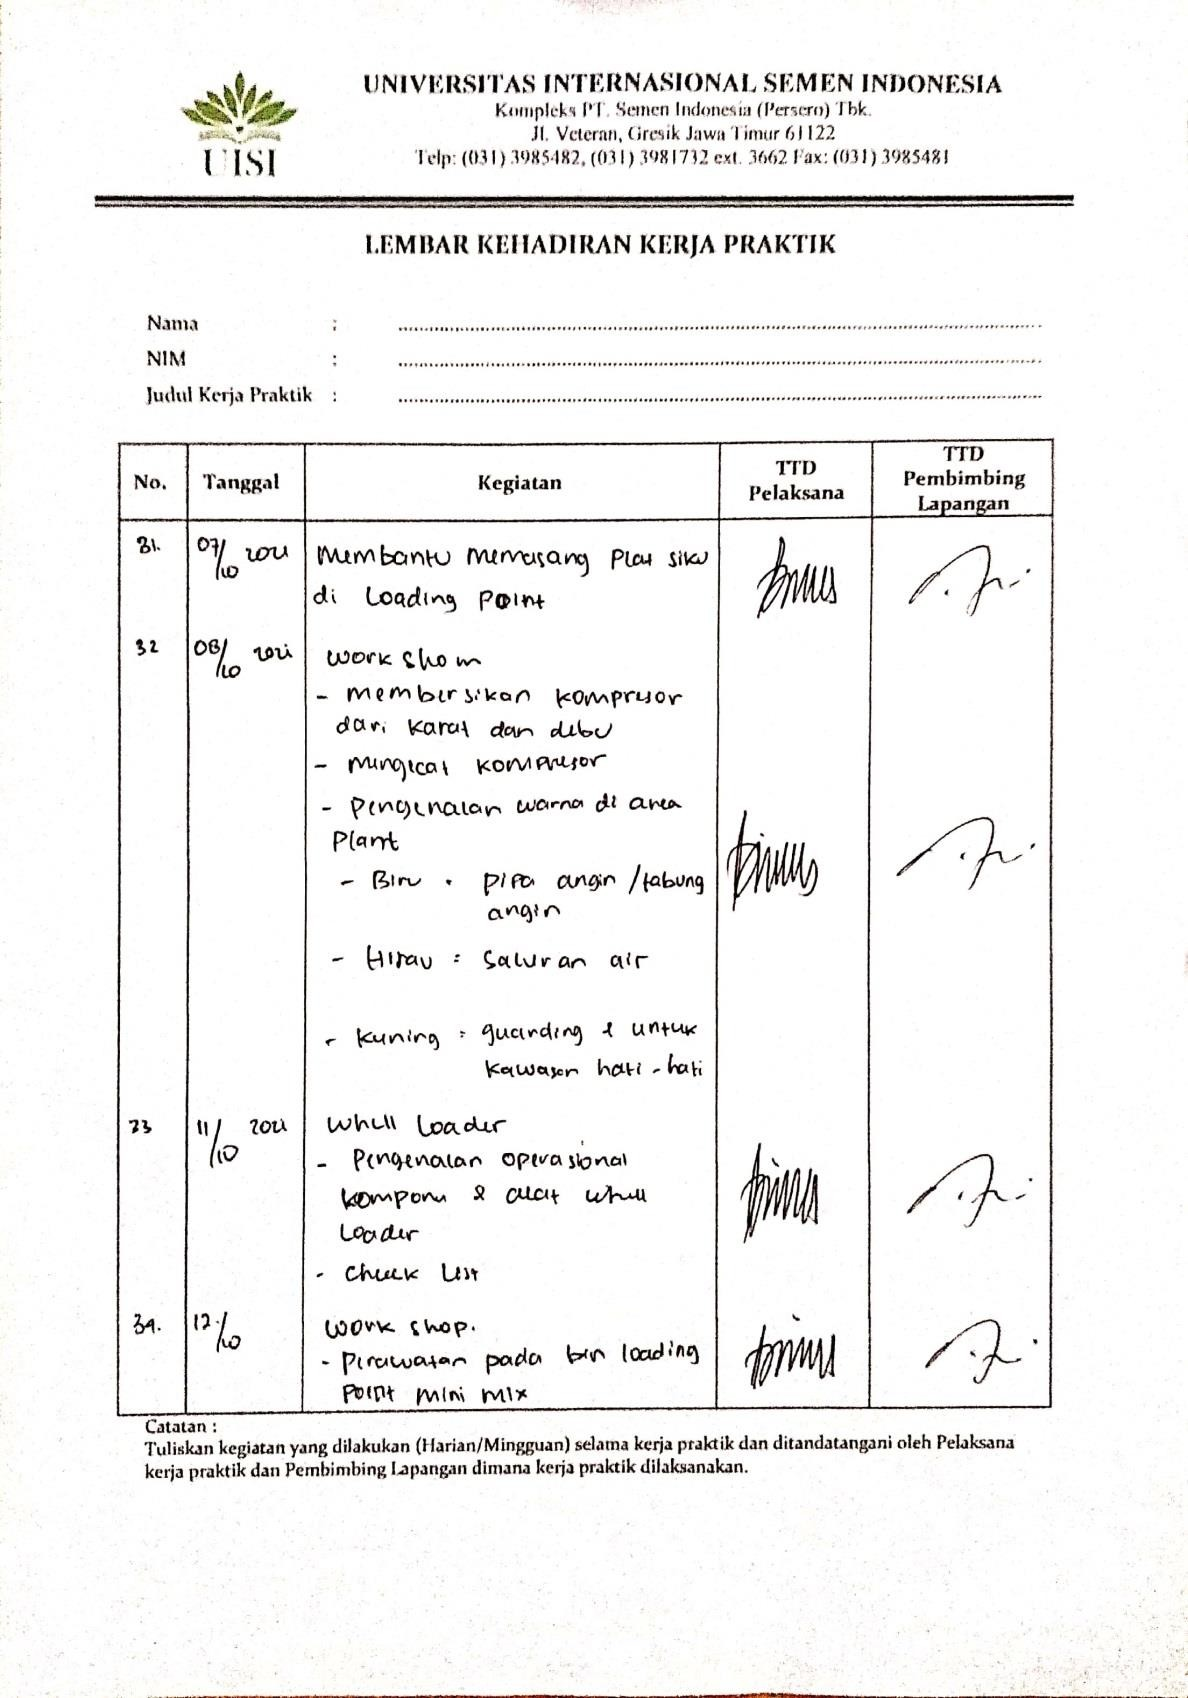 UISI
UNIVERSITAS INTERNASIONAL SEMEN INDONESIA
Kompleks PT. Semen Indonesia (Persero) Tbk.
Jl. Veteran, Gresik Jawa Timur 61122
Telp: (031) 3985482, (031) 3981732 ext. 3662 Fax: (031) 3985481
LEMBAR KEHADIRAN KERJA PRAKTIK
Nama :
NIM :
Judul Kerja Praktik :
No. Tanggal Kegiatan TTD Pelaksana TTD Pembimbing Lapangan
31. 07/10 2021 Membantu memasang Plat siku
di Loading Point
32 08/10 2021 work shom
- membersikan kompresor
dari karat dan debu
- mengecat kompresor
- Pengenalan warna di area
Plant
- Biru : pipa angin / tabung
angin
- Hijau : saluran air
- kuning : guarding & untuk
kawasan hati-hati
33 11/10 2021 whell loader
- Pengenalan operasional
kompone & alat whell
Loader
- check list
34. 12/10 work shop.
- perawatan pada bin loading
point mini mix
Catatan :
Tuliskan kegiatan yang dilakukan (Harian/Mingguan) selama kerja praktik dan ditandatangani oleh Pelaksana
kerja praktik dan Pembimbing Lapangan dimana kerja praktik dilaksanakan.